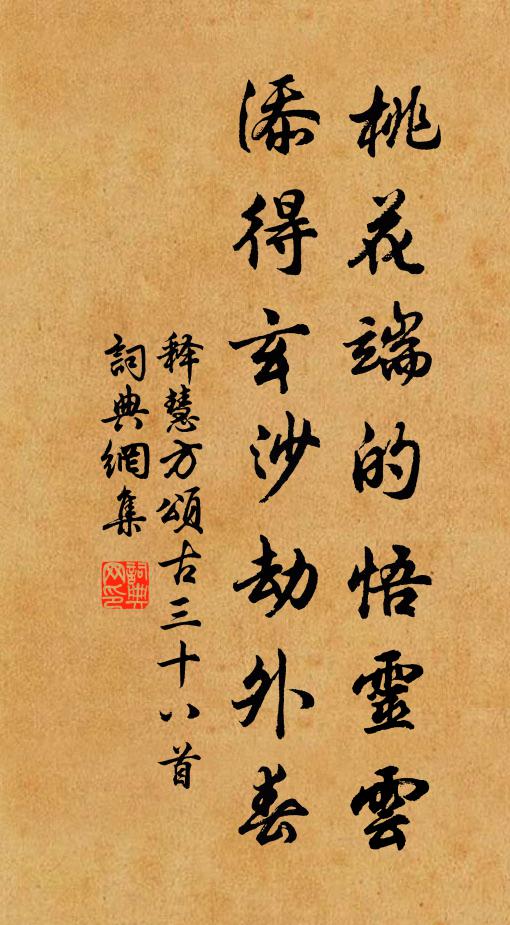 桃花端的悟靈雲
添得玄沙劫外春
释慧方頌古三十八首
詞典網集
詞典網印